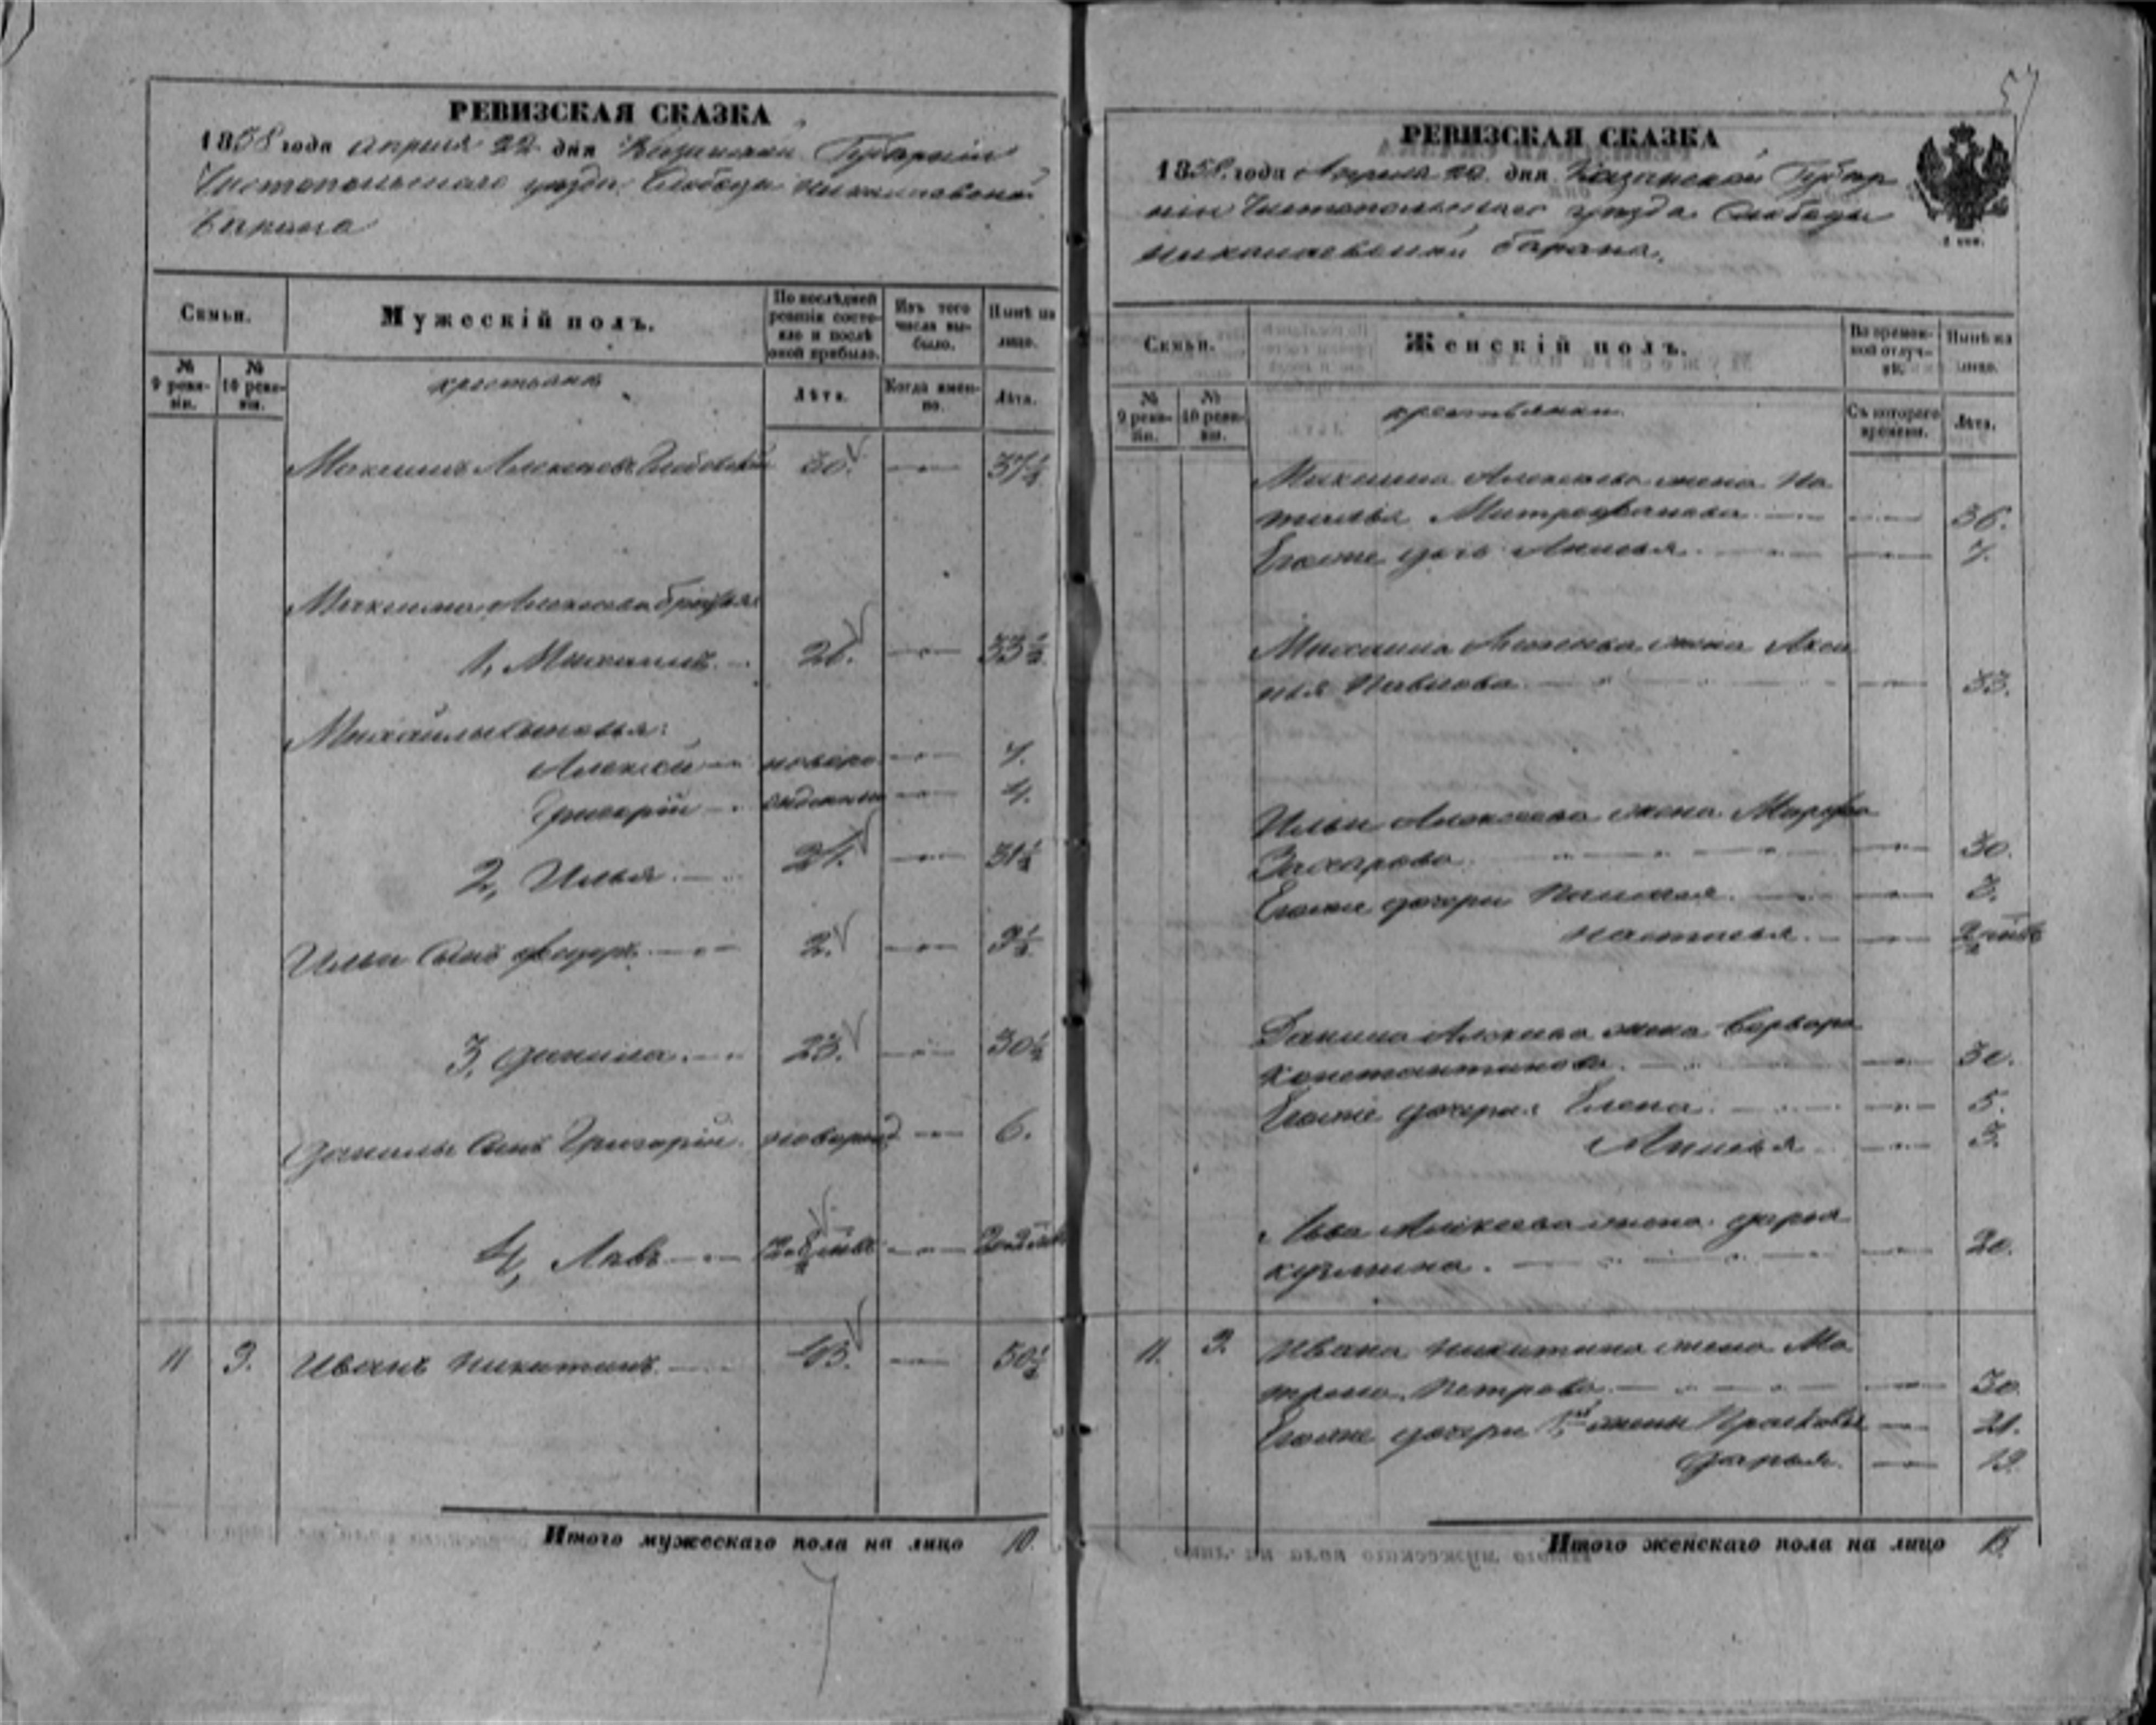 РЕВИЗСКАЯ СКАЗКА
1858 года апреля 22 дня Казанской Губернии
Чистопольскаго уезда Слободы Николаевской
Барана
Семьи.
Мужескій полъ.
По послѣдней ревизіи состояло и послѣ оной прибыло.
Изъ того числа выбыло.
Нынѣ на лицо.
№ 9 ревизіи.
№ 10 ревизіи.
крестьяне
Лѣта.
Когда именно.
Лѣта.
Максимъ Алексеевъ 30. 37½
Максима Алексеева братья
1, Михаилъ. 26. 33½
Михайлы сыновья:
Алексей новоро 7.
Григорій жденные 4.
2, Илья 24. 31½
Ильи сынъ Федоръ 2. 9½
3, Данила 23. 30½
Данилы сынъ Григорій новорожд 6.
4, Левъ
11 9. Иванъ Никитинъ 43. 50½
Итого мужескаго пола на лицо 10.
57
РЕВИЗСКАЯ СКАЗКА
1858 года Апреля 22 дня Казанской Губер
ніи Чистопольскаго уезда Слободы
Николаевской Барана.
Семьи.
Женскій полъ.
Во временной отлучкѣ.
Нынѣ на лицо.
№ 9 ревизіи.
№ 10 ревизіи.
крестьянки
Съ котораго времени.
Лѣта.
Максима Алексеева жена На
талья Митрофанова 36.
Егоже дочь Анисья 7.
Михаила Алексеева жена Акси
нья Павлова 33.
Ильи Алексеева жена Марфа
Захарова 30.
Егоже дочери Пелагея 3.
Настасья
Данила Алексеева жена Варвара
Константинова 30.
Егоже дочери: Елена 5.
Анисья 3.
Льва Алексеева жена Дарья
Кузмина 20.
11. 9. Ивана Никитина жена Ма
трена Петрова 50
Егоже дочери 1й жены Прасковья 21.
Дарья 19.
Итого женскаго пола на лицо